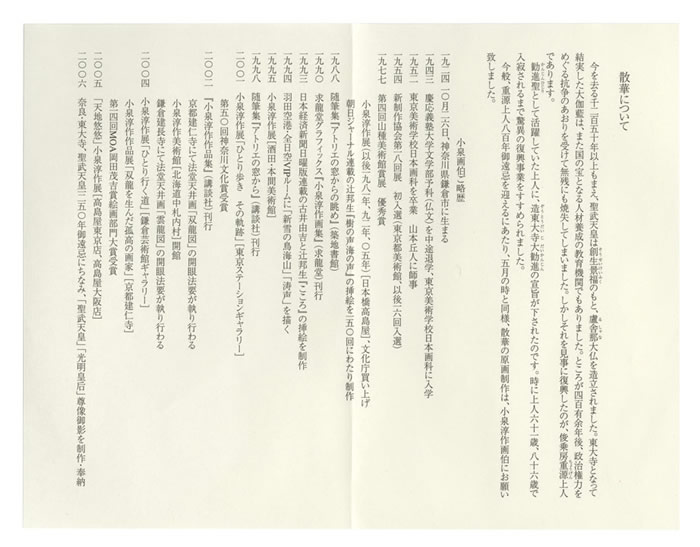 散華について
今を去る千二百五十年以上もまえ、聖武天皇は創生景福のもと、盧舎那大仏を造立されました。東大寺となって
結実した大伽藍は、また国の宝となる人材養成の教育機関でもありました。ところが四百有余年後、政治権力を
めぐる抗争のあおりを受けて無残にも焼失してしまいました。しかしそれを見事に復興したのが、俊乗房重源上人
であります。
勧進聖として活躍していた上人に、造東大寺大勧進の宣旨が下されたのです。時に上人六十一歳、八十六歳で
入寂されるまで、驚異の復興事業をすすめられました。
今般、重源上人八百年御遠忌を迎えるにあたり、五月の時と同様、散華の原画制作は、小泉淳作画伯にお願い
致しました。
小泉画伯ご略歴
一九二四 一〇月二六日、神奈川県鎌倉市に生まる
一九四三 慶応義塾大学文学部予科(仏文)を中途退学、東京美術学校日本画科に入学
一九五二 東京美術学校日本画科を卒業 山本丘人に師事
一九五四 新制作協会第一八回展 初入選(東京都美術館、以後一六回入選)
一九七七 第四回山種美術館賞展 優秀賞
小泉淳作展(以後一九八一年、九二年、〇五年)[日本橋高島屋]、文化庁買い上げ
朝日ジャーナル連載の辻邦生『樹の声海の声』の挿絵を一五〇回にわたり制作
一九八八 随筆集『アトリエの窓からの眺め』(築地書館)
一九九〇 求龍堂グラフィックス『小泉淳作画集』(求龍堂)刊行
一九九三 日本経済新聞日曜版連載の古井由吉と辻邦生『こころ』の挿絵を制作
一九九四 羽田空港・全日空VIPルームに「新雪の鳥海山」「涛声」を描く
一九九五 小泉淳作展[酒田・本間美術館]
一九九八 随筆集『アトリエの窓から』(講談社)刊行
二〇〇一 小泉淳作展「ひとり歩き その軌跡」[東京ステーションギャラリー]
第五〇回神奈川文化賞受賞
二〇〇二 『小泉淳作作品集』(講談社)刊行
京都建仁寺にて法堂天井画「双龍図」の開眼法要が執り行わる
小泉淳作美術館[北海道中札内村]開館
鎌倉建長寺にて法堂天井画「雲龍図」の開眼法要が執り行わる
二〇〇四 小泉淳作展「ひとり行く道」[鎌倉芸術館ギャラリー]
小泉淳作作品展「双龍を生んだ孤高の画家」[京都建仁寺]
第一四回MOA岡田茂吉賞絵画部門大賞受賞
二〇〇五 「天地悠悠」小泉淳作展[高島屋東京店、高島屋大阪店]
二〇〇六 奈良・東大寺、聖武天皇一二五〇年御遠忌にちなみ、「聖武天皇」「光明皇后」尊像御影を制作・奉納